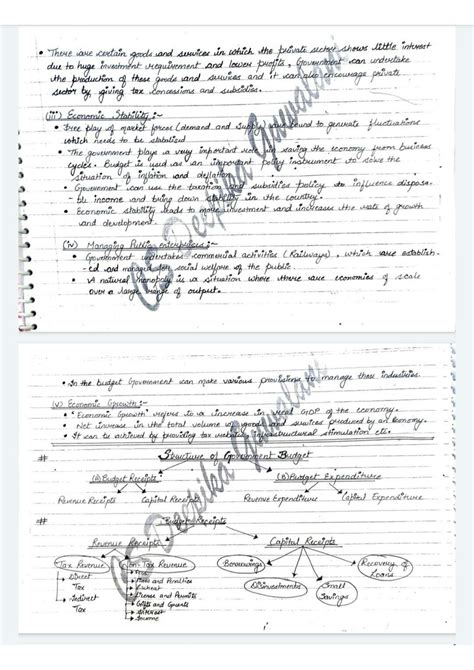 • There are certain goods and services in which the private sector shows little interest
due to huge investment requirement and lower profits, Government can undertake
the production of these goods and services and it can also encourage private
sector by giving tax concessions and subsidies.
(iii) Economic Stability :-
• Free play of market forces (demand and supply) are bound to generate fluctuations
which needs to be stabilised
• The government plays a very important role in saving the economy from business
cycles. Budget is used as an important policy instrument to solve the
situation of inflation and deflation.
• Government can use the taxation and subsidies policy to influence disposa-
ble income and bring down stability in the country.
• Economic stability leads to more investment and increases the rate of growth
and development.
(iv) Managing Public enterprises :-
• Government undertakes commercial activities (Railways), which are establish-
ed and managed for social welfare of the public.
• A natural monopoly is a situation where there are economies of scale
over a large range of output.
• In the budget Government can make various provisions to manage these industries.
(v) Economic Growth :-
• 'Economic Growth' refers to a increase in real GDP of the economy.
• Net increase in the total volume of goods and services produced by an Economy.
• It can be achieved by providing tax infrastructural stimulation etc.
# Structure of Government Budget
(a) Budget Receipts (b) Budget Expenditure
Revenue Receipts Capital Receipts Revenue Expenditure Capital Expenditure
# Budget Receipts
Revenue Receipts Capital Receipts
Tax Revenue Non-Tax Revenue Borrowings Recovery of
Loans
Direct
Tax
Indirect
Tax
Fees
Fines and Penalties
Escheat
License and Permits
Gifts and Grants
Interest
Income
Disinvestments Small
Savings
© Deepika
© Deepika